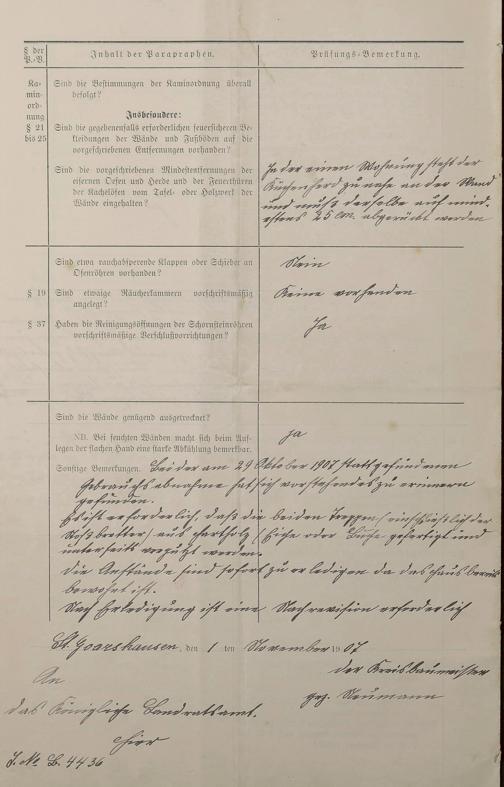 § der P.-V.
Inhalt der Parapraphen.
Prüfungs-Bemerkung.
Ka-
min-
ord-
nung
§ 21
bis 25
Sind die Bestimmungen der Kaminordnung überall
befolgt?
Insbesondere:
Sind die gegebenenfalls erforderlichen feuersicheren Be-
kleidungen der Wände und Fußböden auf die
vorgeschriebenen Entfernungen vorhanden?
Sind die vorgeschriebenen Mindestentfernungen der
eisernen Oefen und Herde und der Feuerthüren
der Kachelöfen vom Tafel- oder Holzwerk der
Wände eingehalten?
In der einen Wohnung steht der
Küchenherd zu nahe an der Wand
und muß derselbe auf mind-
estens 25 cm. abgerückt werden
Sind etwa rauchabsperende Klappen oder Schieber an
Ofenröhren vorhanden?
Nein
§ 19
Sind etwaige Räucherkammern vorschriftsmäßig
angelegt?
Keine vorhanden
§ 37
Haben die Reinigungsöffnungen der Schornsteinröhren
vorschriftsmäßige Verschlußvorrichtungen?
Ja
Sind die Wände genügend ausgetrocknet?
ja
NB. Bei feuchten Wänden macht sich beim Auf-
legen der flachen Hand eine starke Abkühlung bemerkbar.
Sonstige Bemerkungen. Bei der am 29 Oktober 1907 stattgefundenen
Gebrauchsabnahme hat sich vorstehendes zu erinnern
gefunden.
Es ist erforderlich, daß die beiden Treppen (einschließlich der
Stoßbretter) aus Hartholz (Eiche oder Buche) gefertigt und
unterseits verputzt werden.
Die Anstände sind sofort zu erledigen da das Haus bereits
bewohnt ist.
Nach Erledigung ist eine Nachrevision erforderlich
St. Goarshausen, den 1 ten November 1907
der Kreisbaumeister
gez. Neumann
An
das Königliche Landratsamt.
hier
J. No B. 4436